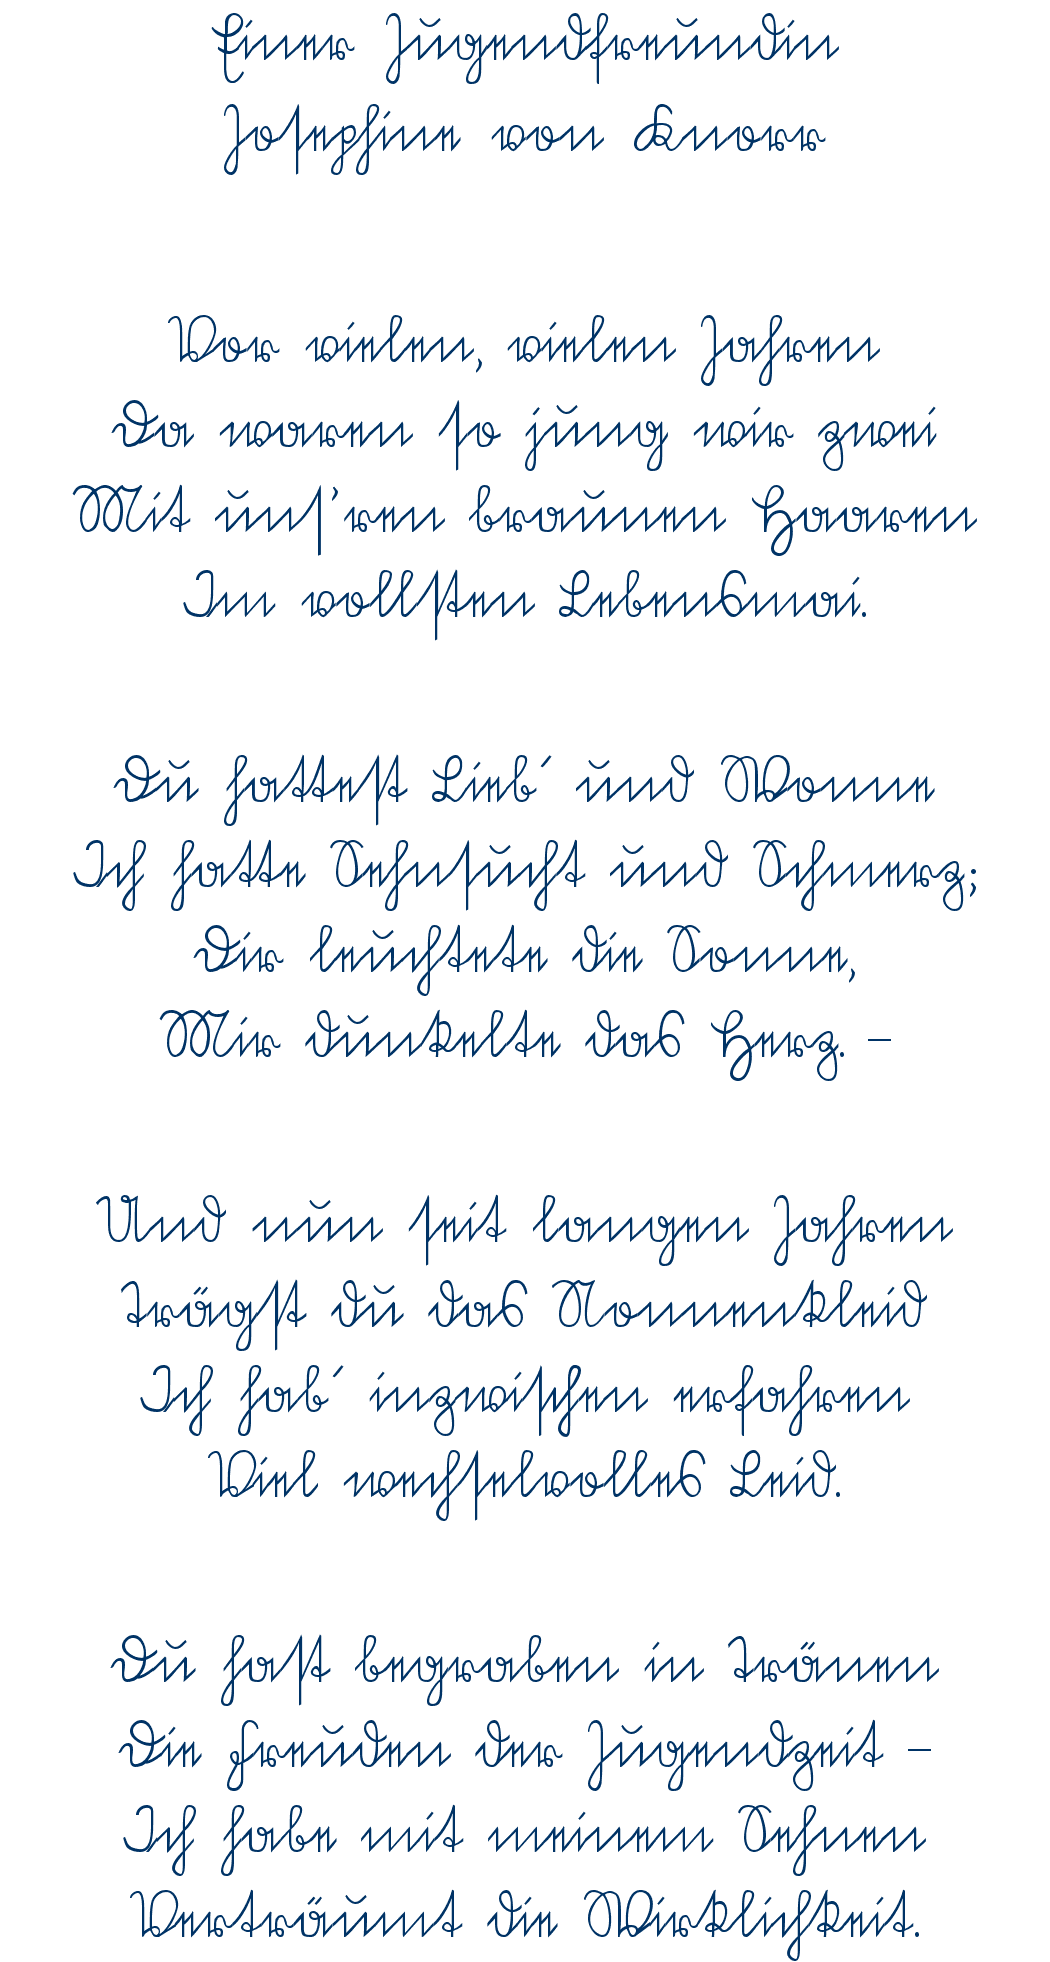 Einer Jugendfreundin
Josephine von Knorr
Vor vielen, vielen Jahren
Da waren so jung wir zwei
Mit uns'ren braunen Haaren
Im vollsten Lebensmai.
Du hattest Lieb´ und Wonne
Ich hatte Sehnsucht und Schmerz;
Dir leuchtete die Sonne,
Mir dunkelte das Herz. –
Und nun seit langen Jahren
Trägst du das Nonnenkleid
Ich hab´ inzwischen erfahren
Viel wechselvolles Leid.
Du hast begraben in Tränen
Die Freuden der Jugendzeit –
Ich habe mit meinem Sehnen
Verträumt die Wirklichkeit.